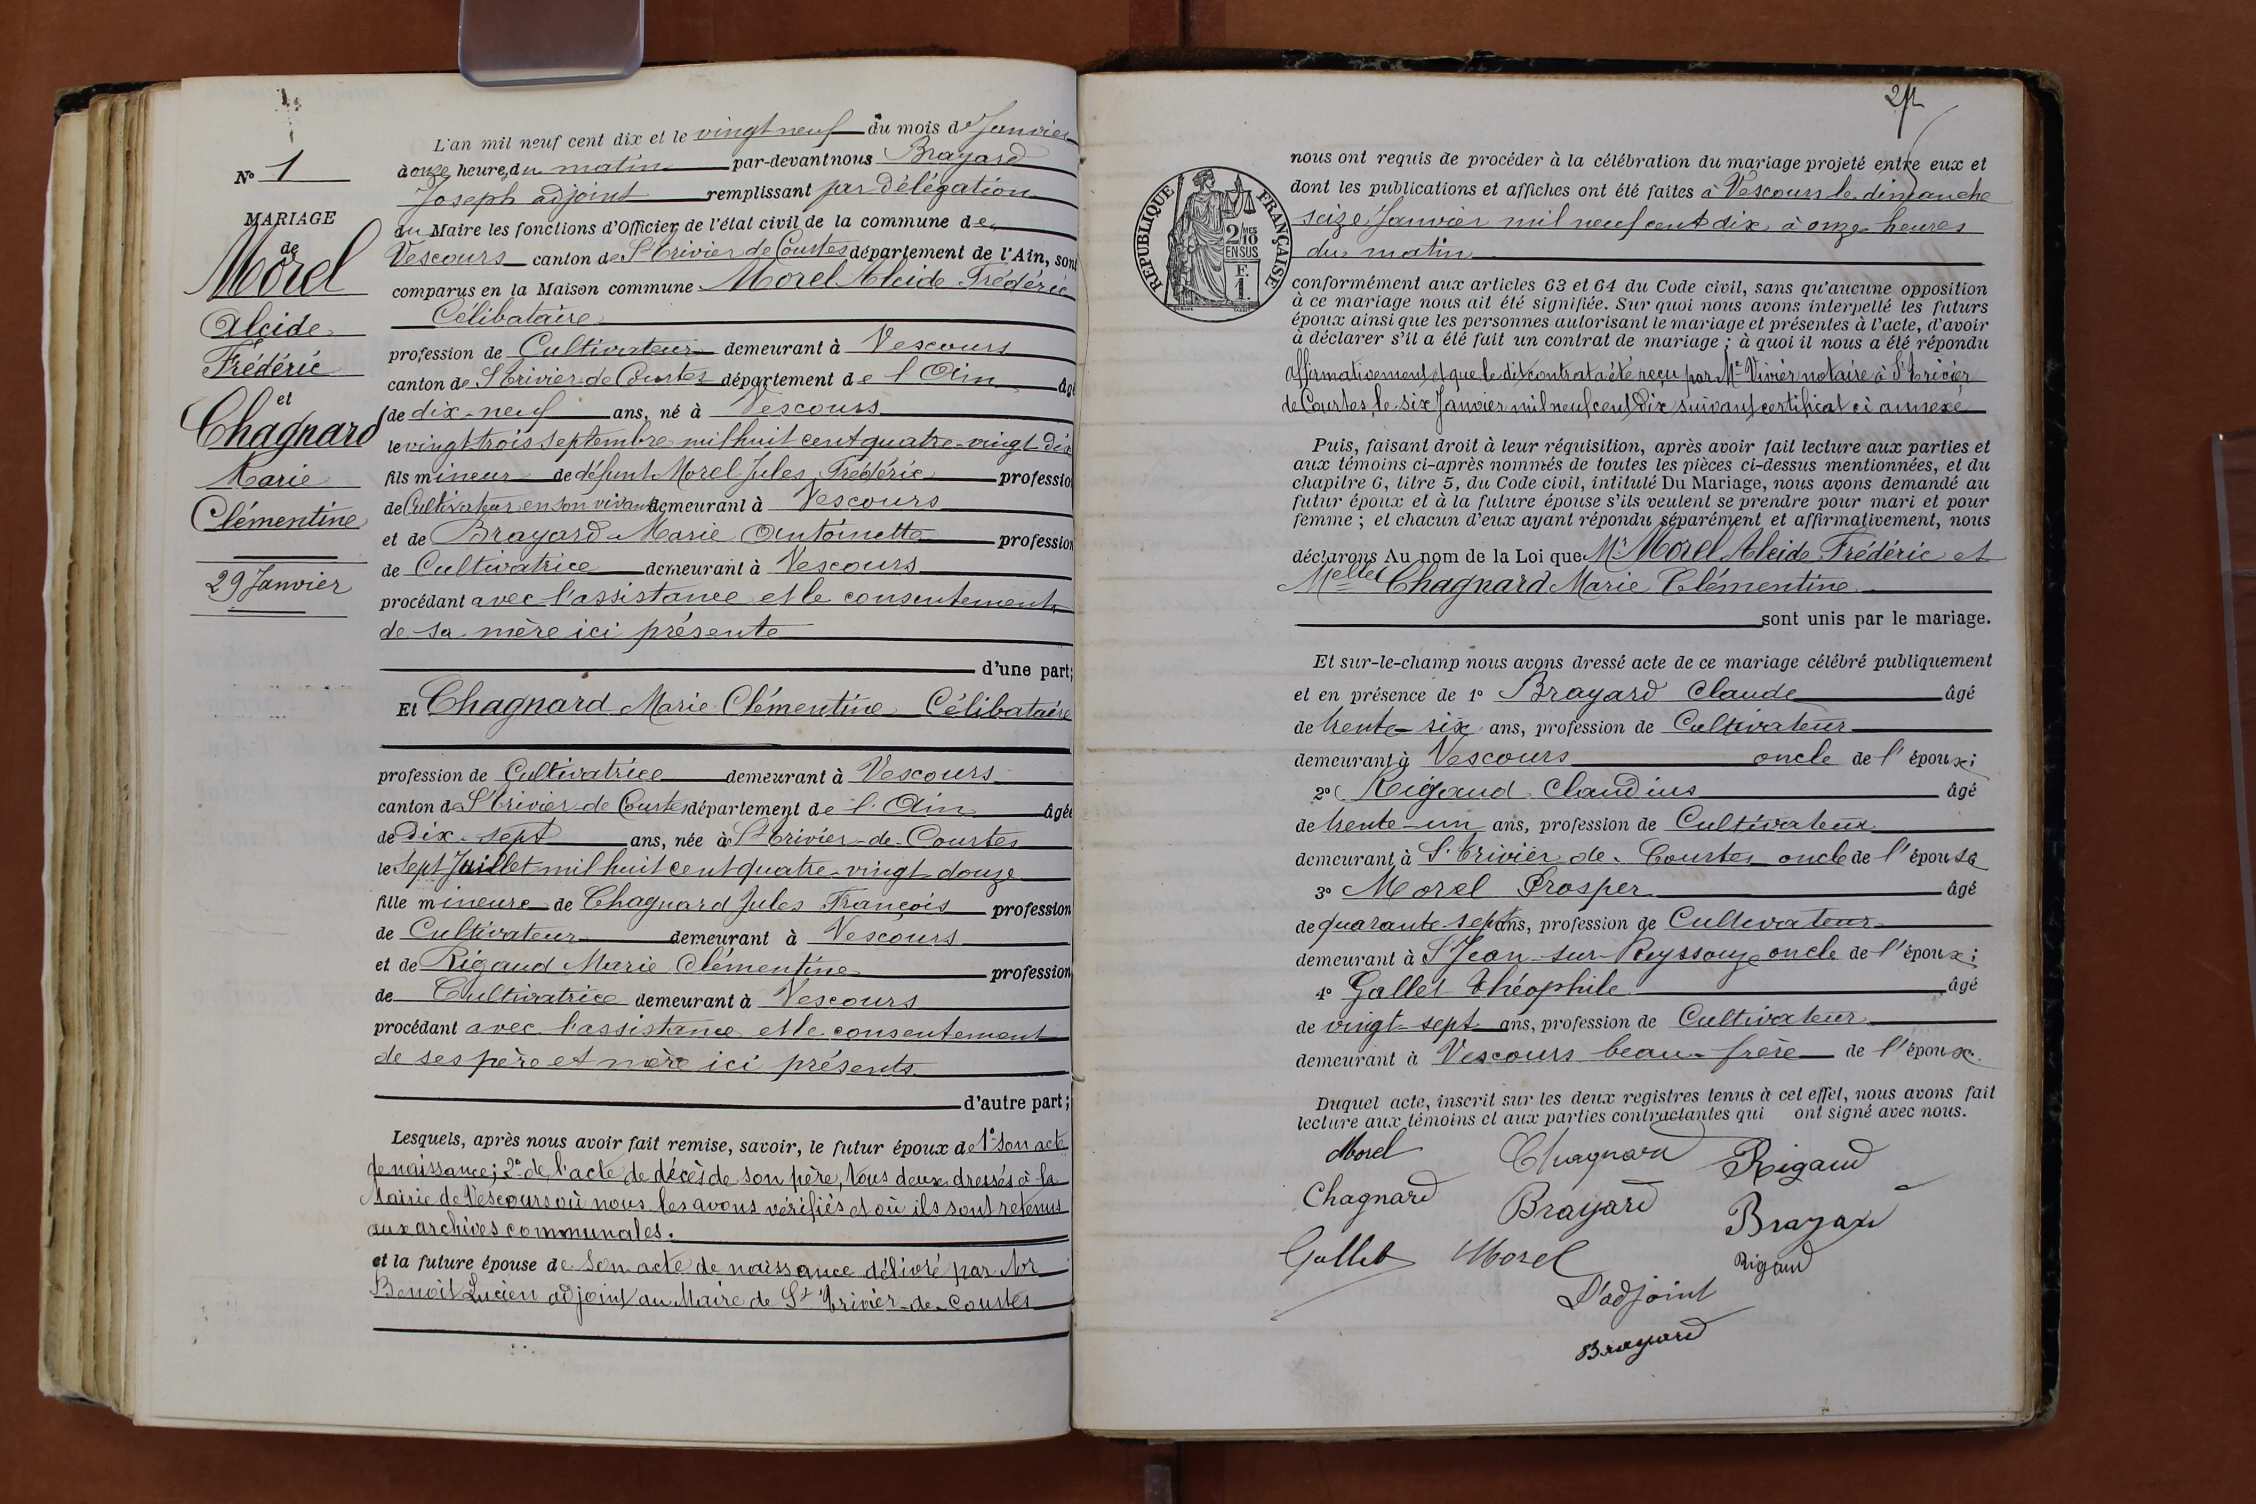 N° 1
MARIAGE
de
Morel
Alcide
Frédéric
et
Chagnard
Marie
Clémentine
29 Janvier
L'an mil neuf cent dix et le vingt neuf du mois de Janvier
à onze heures du matin par-devant nous Brayard
Joseph adjoint remplissant par délégation
du Maire les fonctions d'Officier de l'état civil de la commune de
Vescours canton de St Trivier de Courtes département de l'Ain, sont
comparus en la Maison commune Morel Alcide Frédéric
Célibataire
profession de Cultivateur demeurant à Vescours
canton de St Trivier de Courtes département de l'Ain âgé
de dix-neuf ans, né à Vescours
le vingt trois septembre mil huit cent quatre-vingt dix
fils mineur de défunt Morel Jules Frédéric profession
de Cultivateur en son vivant demeurant à Vescours
et de Brayard Marie Antoinette profession
de Cultivatrice demeurant à Vescours
procédant avec l'assistance et le consentement
de sa mère ici présente
d'une part;
Et Chagnard Marie Clémentine Célibataire
profession de Cultivatrice demeurant à Vescours
canton de St Trivier de Courtes département de l'Ain âgée
de Dix-sept ans, née à St Trivier-de-Courtes
le Sept Juillet mil huit cent quatre-vingt douze
fille mineure de Chagnard Jules François profession
de Cultivateur demeurant à Vescours
et de Rigaud Marie Clémentine profession
de Cultivatrice demeurant à Vescours
procédant avec l'assistance et le consentement
de ses père et mère ici présents
d'autre part;
Lesquels, après nous avoir fait remise, savoir, le futur époux de 1° son acte
de naissance; 2° de l'acte de décès de son père, tous deux dressés à la
Mairie de Vescours où nous les avons vérifiés et où ils sont retenus
aux archives communales.
et la future épouse de son acte de naissance délivré par Mr
Benoit Lucien adjoint au Maire de St Trivier-de-Courtes
RÉPUBLIQUE FRANÇAISE
2/10 MES
EN SUS
F.
1.
nous ont requis de procéder à la célébration du mariage projeté entre eux et
dont les publications et affiches ont été faites à Vescours le dimanche
seize Janvier mil neuf cent dix à onze heures
du matin
conformément aux articles 63 et 64 du Code civil, sans qu'aucune opposition
à ce mariage nous ait été signifiée. Sur quoi nous avons interpellé les futurs
époux ainsi que les personnes autorisant le mariage et présentes à l'acte, d'avoir
à déclarer s'il a été fait un contrat de mariage; à quoi il nous a été répondu
affirmativement et que le dit contrat a été reçu par Me Vivier notaire à St Trivier
de Courtes, le six Janvier mil neuf cent Dix suivant certificat ci annexé
Puis, faisant droit à leur réquisition, après avoir fait lecture aux parties et
aux témoins ci-après nommés de toutes les pièces ci-dessus mentionnées, et du
chapitre 6, titre 5, du Code civil, intitulé Du Mariage, nous avons demandé au
futur époux et à la future épouse s'ils veulent se prendre pour mari et pour
femme; et chacun d'eux ayant répondu séparément et affirmativement, nous
déclarons Au nom de la Loi que Mr Morel Alcide Frédéric et
Melle Chagnard Marie Clémentine
sont unis par le mariage.
Et sur-le-champ nous avons dressé acte de ce mariage célébré publiquement
et en présence de 1° Brayard Claude âgé
de trente-six ans, profession de Cultivateur
demeurant à Vescours oncle de l'époux;
2° Rigaud Claudius âgé
de trente-un ans, profession de Cultivateur
demeurant à St Trivier de Courtes oncle de l'épouse
3° Morel Prosper âgé
de quarante sept ans, profession de Cultivateur
demeurant à St Jean-sur-Reyssouze oncle de l'époux;
4° Gallet Théophile âgé
de vingt-sept ans, profession de Cultivateur
demeurant à Vescours beau-frère de l'époux.
Duquel acte, inscrit sur les deux registres tenus à cet effet, nous avons fait
lecture aux témoins et aux parties contractantes qui ont signé avec nous.
Morel Chagnard Rigaud
Chagnard Brayard Brayard
Gallet Morel Rigaud
L'adjoint
Brayard